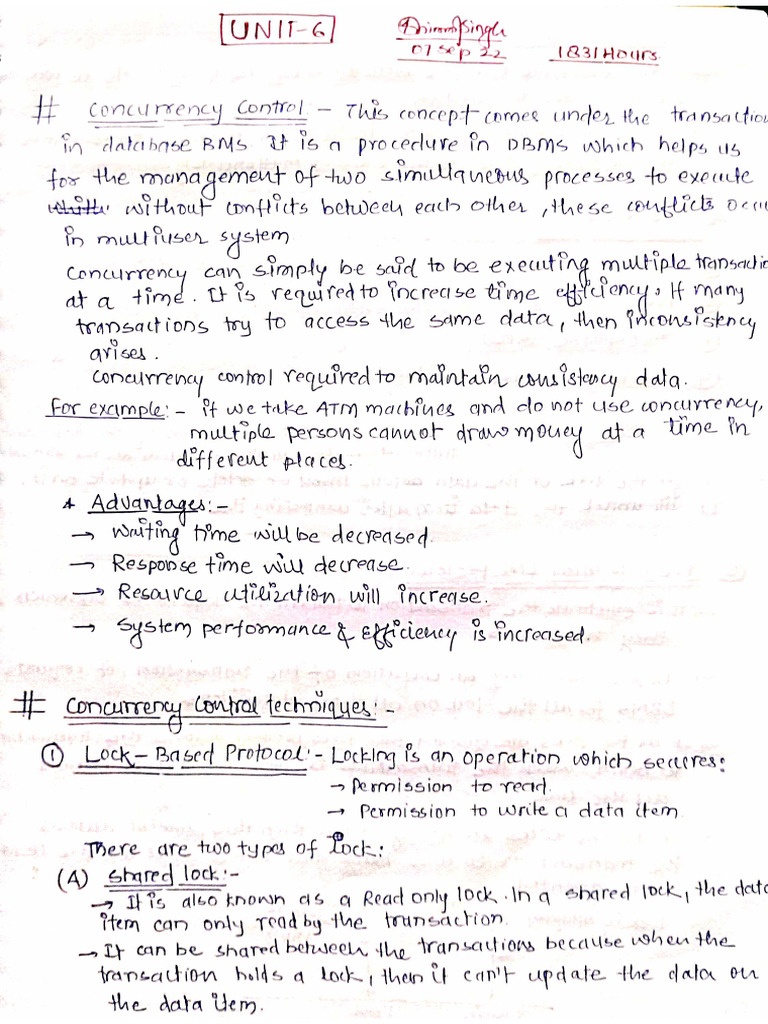 UNIT-6
07 Sep 22 1831 Hours.
# Concurrency Control :- This concept comes under the transaction
in database BMS It is a procedure in DBMS which helps us
for the management of two simultaneous processes to execute
without conflicts between each other, these conflicts occu
in multiuser system
Concurrency can simply be said to be executing multiple transactio
at a time. It is required to increase time efficiency. If many
transactions try to access the same data, then inconsistency
arises.
Concurrency control required to maintain consistency data.
For example:- if we take ATM machines and do not use concurrency,
multiple persons cannot draw money at a time in
different places.
* Advantages:-
→ Waiting time will be decreased.
→ Response time will decrease.
→ Resource utilization will increase.
→ System performance & Efficiency is increased.
# Concurrency Control techniques:-
① Lock-Based Protocol:- Locking is an operation which secures:
→ Permission to read.
→ Permission to write a data item.
There are two types of Lock:
(A) Shared lock:-
→ It is also known as a Read only lock. In a shared lock, the data
item can only read by the transaction.
→ It can be shared between the transactions because when the
transaction holds a lock, then it can't update the data on
the data item.